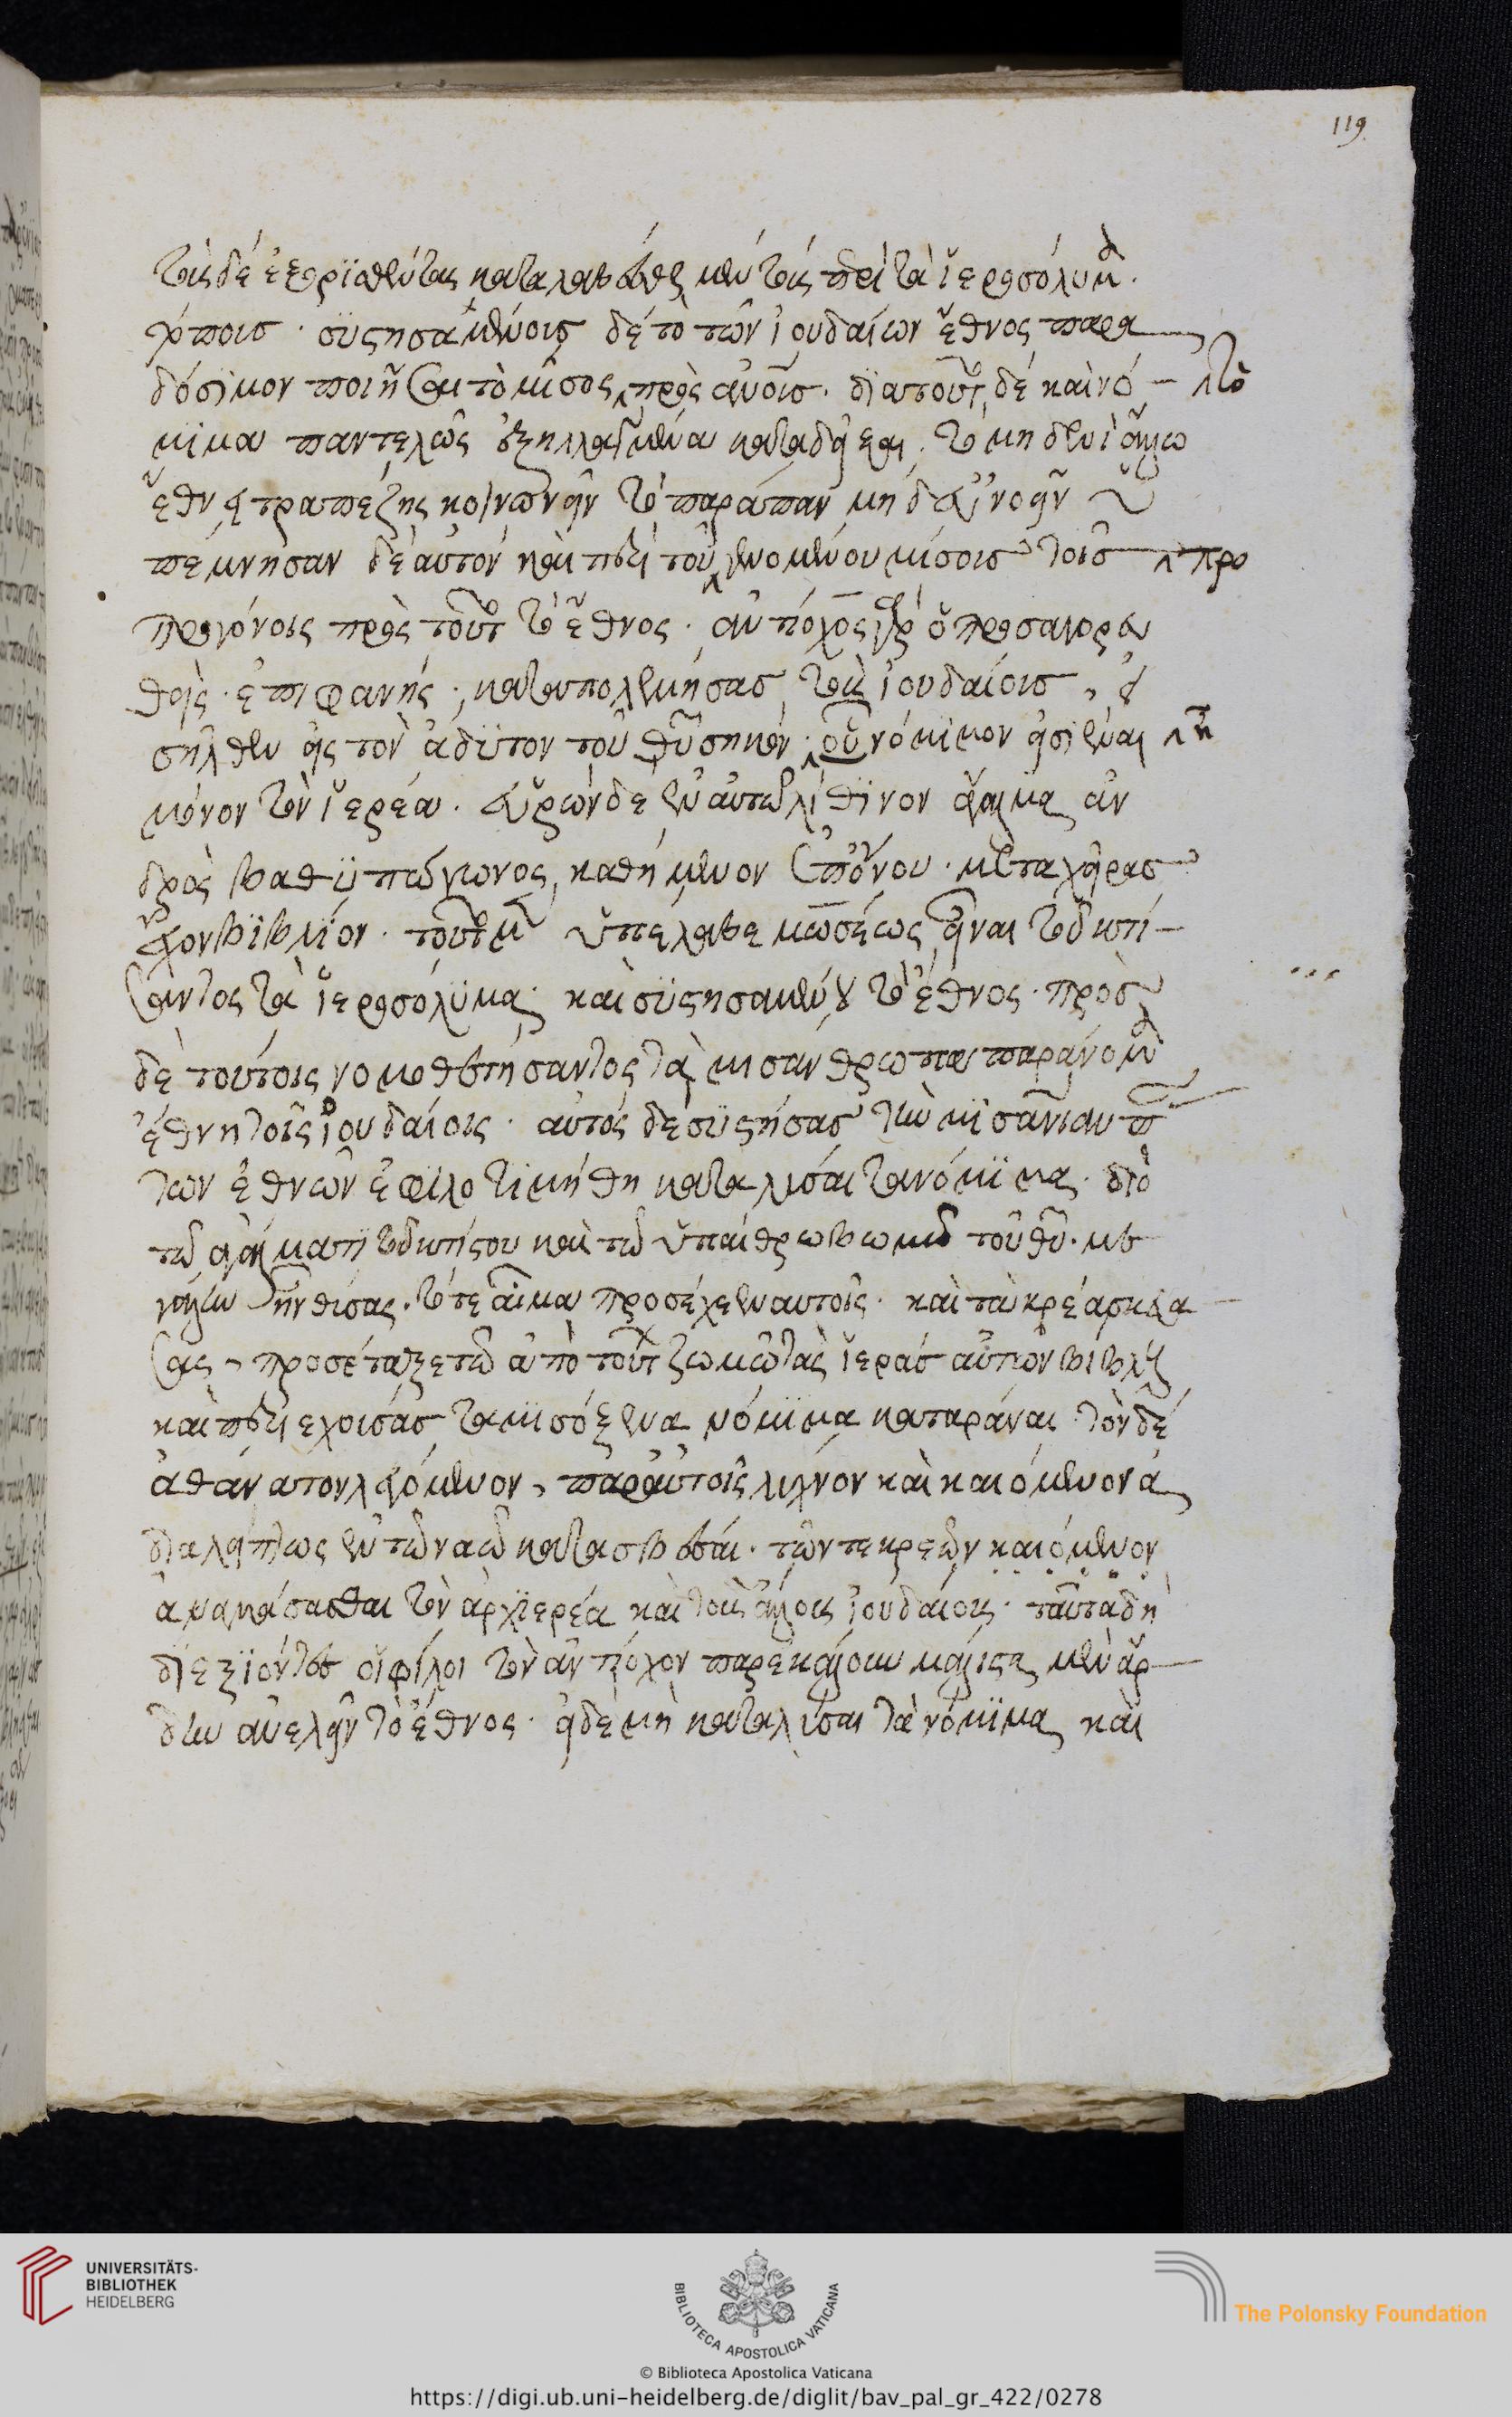 τοὺς δὲ ἐξορισθέντας καταλαβέσθαι μὲν τοὺς περὶ τὰ ἱεροσόλυμα
τόπους· συστησαμένους δὲ τὸ τῶν ἰουδαίων ἔθνος παρα
δόσιμον ποιῆσαι τὸ μῖσος πρὸς ἀνους· διατοῦτο δὲ καὶ νό-
μιμα παντελῶς ἐξηλλαγμένα καταδεῖξαι· τὸ μηδενὶ ἄλλω
ἔθνει τραπέζης κοινωνεῖν τὸ παράπαν μηδ εὐνοεῖν ὑ
πέμνησαν δὲ αὐτὸν καὶ περὶ τοῦ γενομένου μίσους τοῖς
προγόνοις πρὸς τοῦτο τὸ ἔθνος· ἀντίοχος γὰρ ὁ προσαγορευ
θεὶς· ἐπιφανής· καταπολεμήσας τοὺς ἰουδαίους, εἰ
σῆλθεν εἰς τὸν ἄδυτον τοῦ θῦ σηκόν· οὗ νόμιμον εἰσιέναι
μόνον τὸν ἱερέα· εὑρὼν δὲ ἐν αὐτῷ λίθινον ἄγαλμα ἀν
δρὸς βαθυπώγωνος, καθήμενον ἐπόνου· μεταχεῖρας
ἔχον βιβλίον· τοῦτο μὲν ὑπέλαβε μωσέως εἶναι τοῦ κτί-
σαντος τὰ ἱεροσόλυμα· καὶ συστησαμένου τὸ ἔθνος· πρὸς
δὲ τούτοις νομοθετήσαντος τὰ μισανθρωπα παράνομα
ἔθνη τοῖς ἰουδαίοις· αὐτὸς δὲ συστήσας τὴν μισανιαν π
των ἐθνῶν ἐφιλοτιμήθη καταλῦσαι τα νόμιμα· διὸ
τῶ ἀγάλματι τοῦ κτίστου καὶ τῶ ὑπαίθρω βωμῶ τοῦ θῦ· με
γάλην ὗν θύσας· τό τε αἷμα προσέχεεν αὐτοῖς· καὶ τὰ κρέα σκευά
σας, προσέταξε τῶ ἀπὸ τούτων ζωμῶ τὰς ἱερὰς αὐτῶν βίβλους
καὶ περιεχούσας τα μισόξενα νόμιμα καταρᾶναι· τὸν δὲ
ἀθάνατον λεγόμενον, παρ αὐτοῖς λύχνον καὶ καιόμενον ἀ
διαλείπτως ἐν τῶ ναῶ κατασβέσαι· τῶν τε κρεῶν καιόμενον
ἀναγκάσασθαι τὸν ἀρχιερέα καὶ τοὺς ἄλλους ἰουδαίους· ταῦτα δὴ
διεξιόντες οἱ φίλοι τὸν ἀντίοχον παρεκάλουν μάλιστα μὲν ἄρ-
δην ἀνελεῖν τὸ ἔθνος· εἰ δὲ μὴ καταλῦσαι τὰ νόμιμα, καὶ
τὸ
προ
119
UNIVERSITÄTS-
BIBLIOTHEK
HEIDELBERG
BIBLIOTECA APOSTOLICA VATICANA
The Polonsky Foundation
© Biblioteca Apostolica Vaticana
https://digi.ub.uni-heidelberg.de/diglit/bav_pal_gr_422/0278